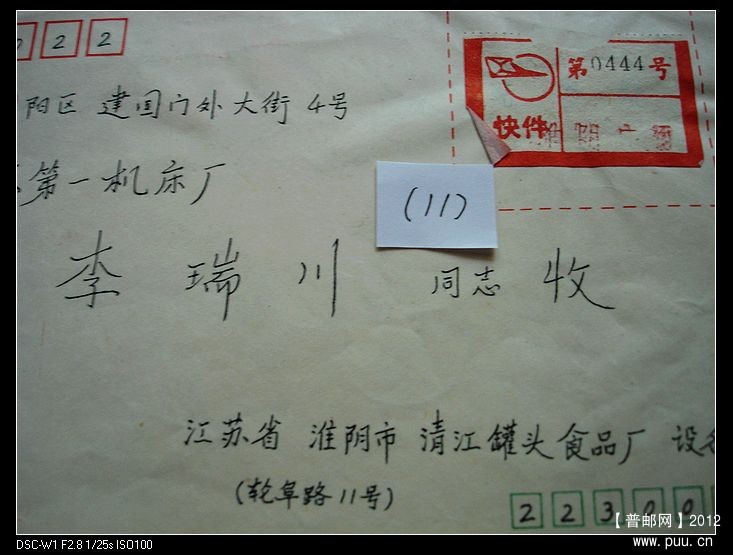 2 2
第0444号
快件
阳区 建国门外大街 4号
第一机床厂
(11)
李 瑞 川 同志 收
江苏省 淮阴市 清江罐头食品厂 设
(轮阜路11号)
2 2 3 0 0
【普邮网】2012
www.puu.cn
DSC-W1 F2.8 1/25s ISO100